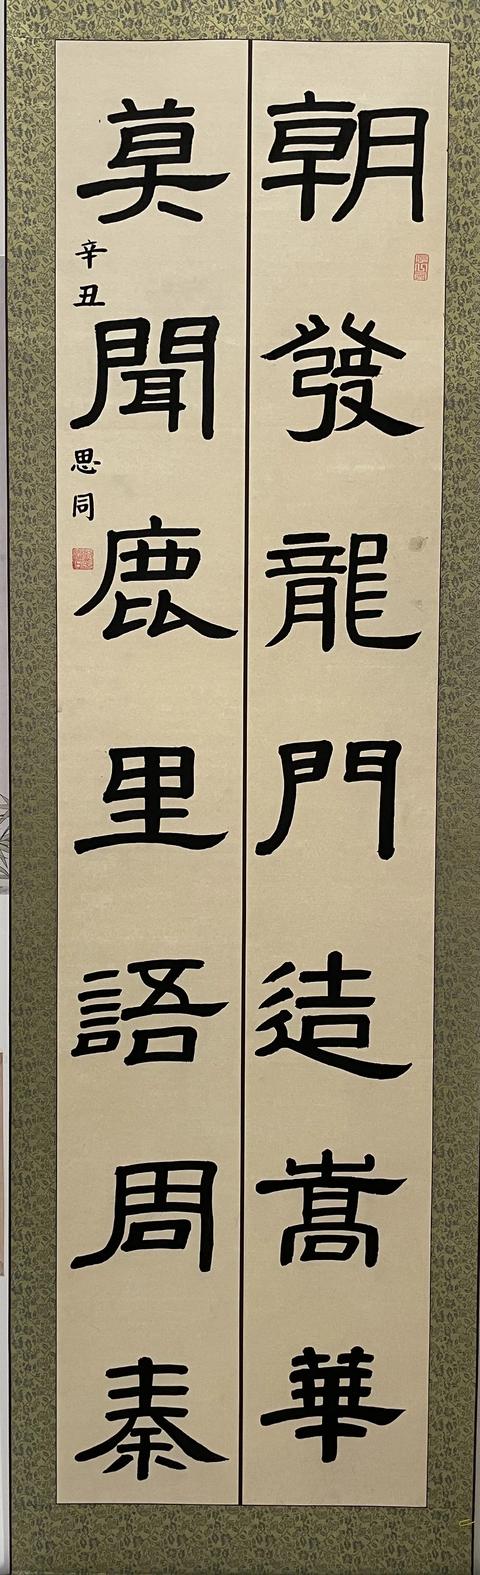 朝發龍門造嵩華
莫聞鹿里語周秦
辛丑
思同